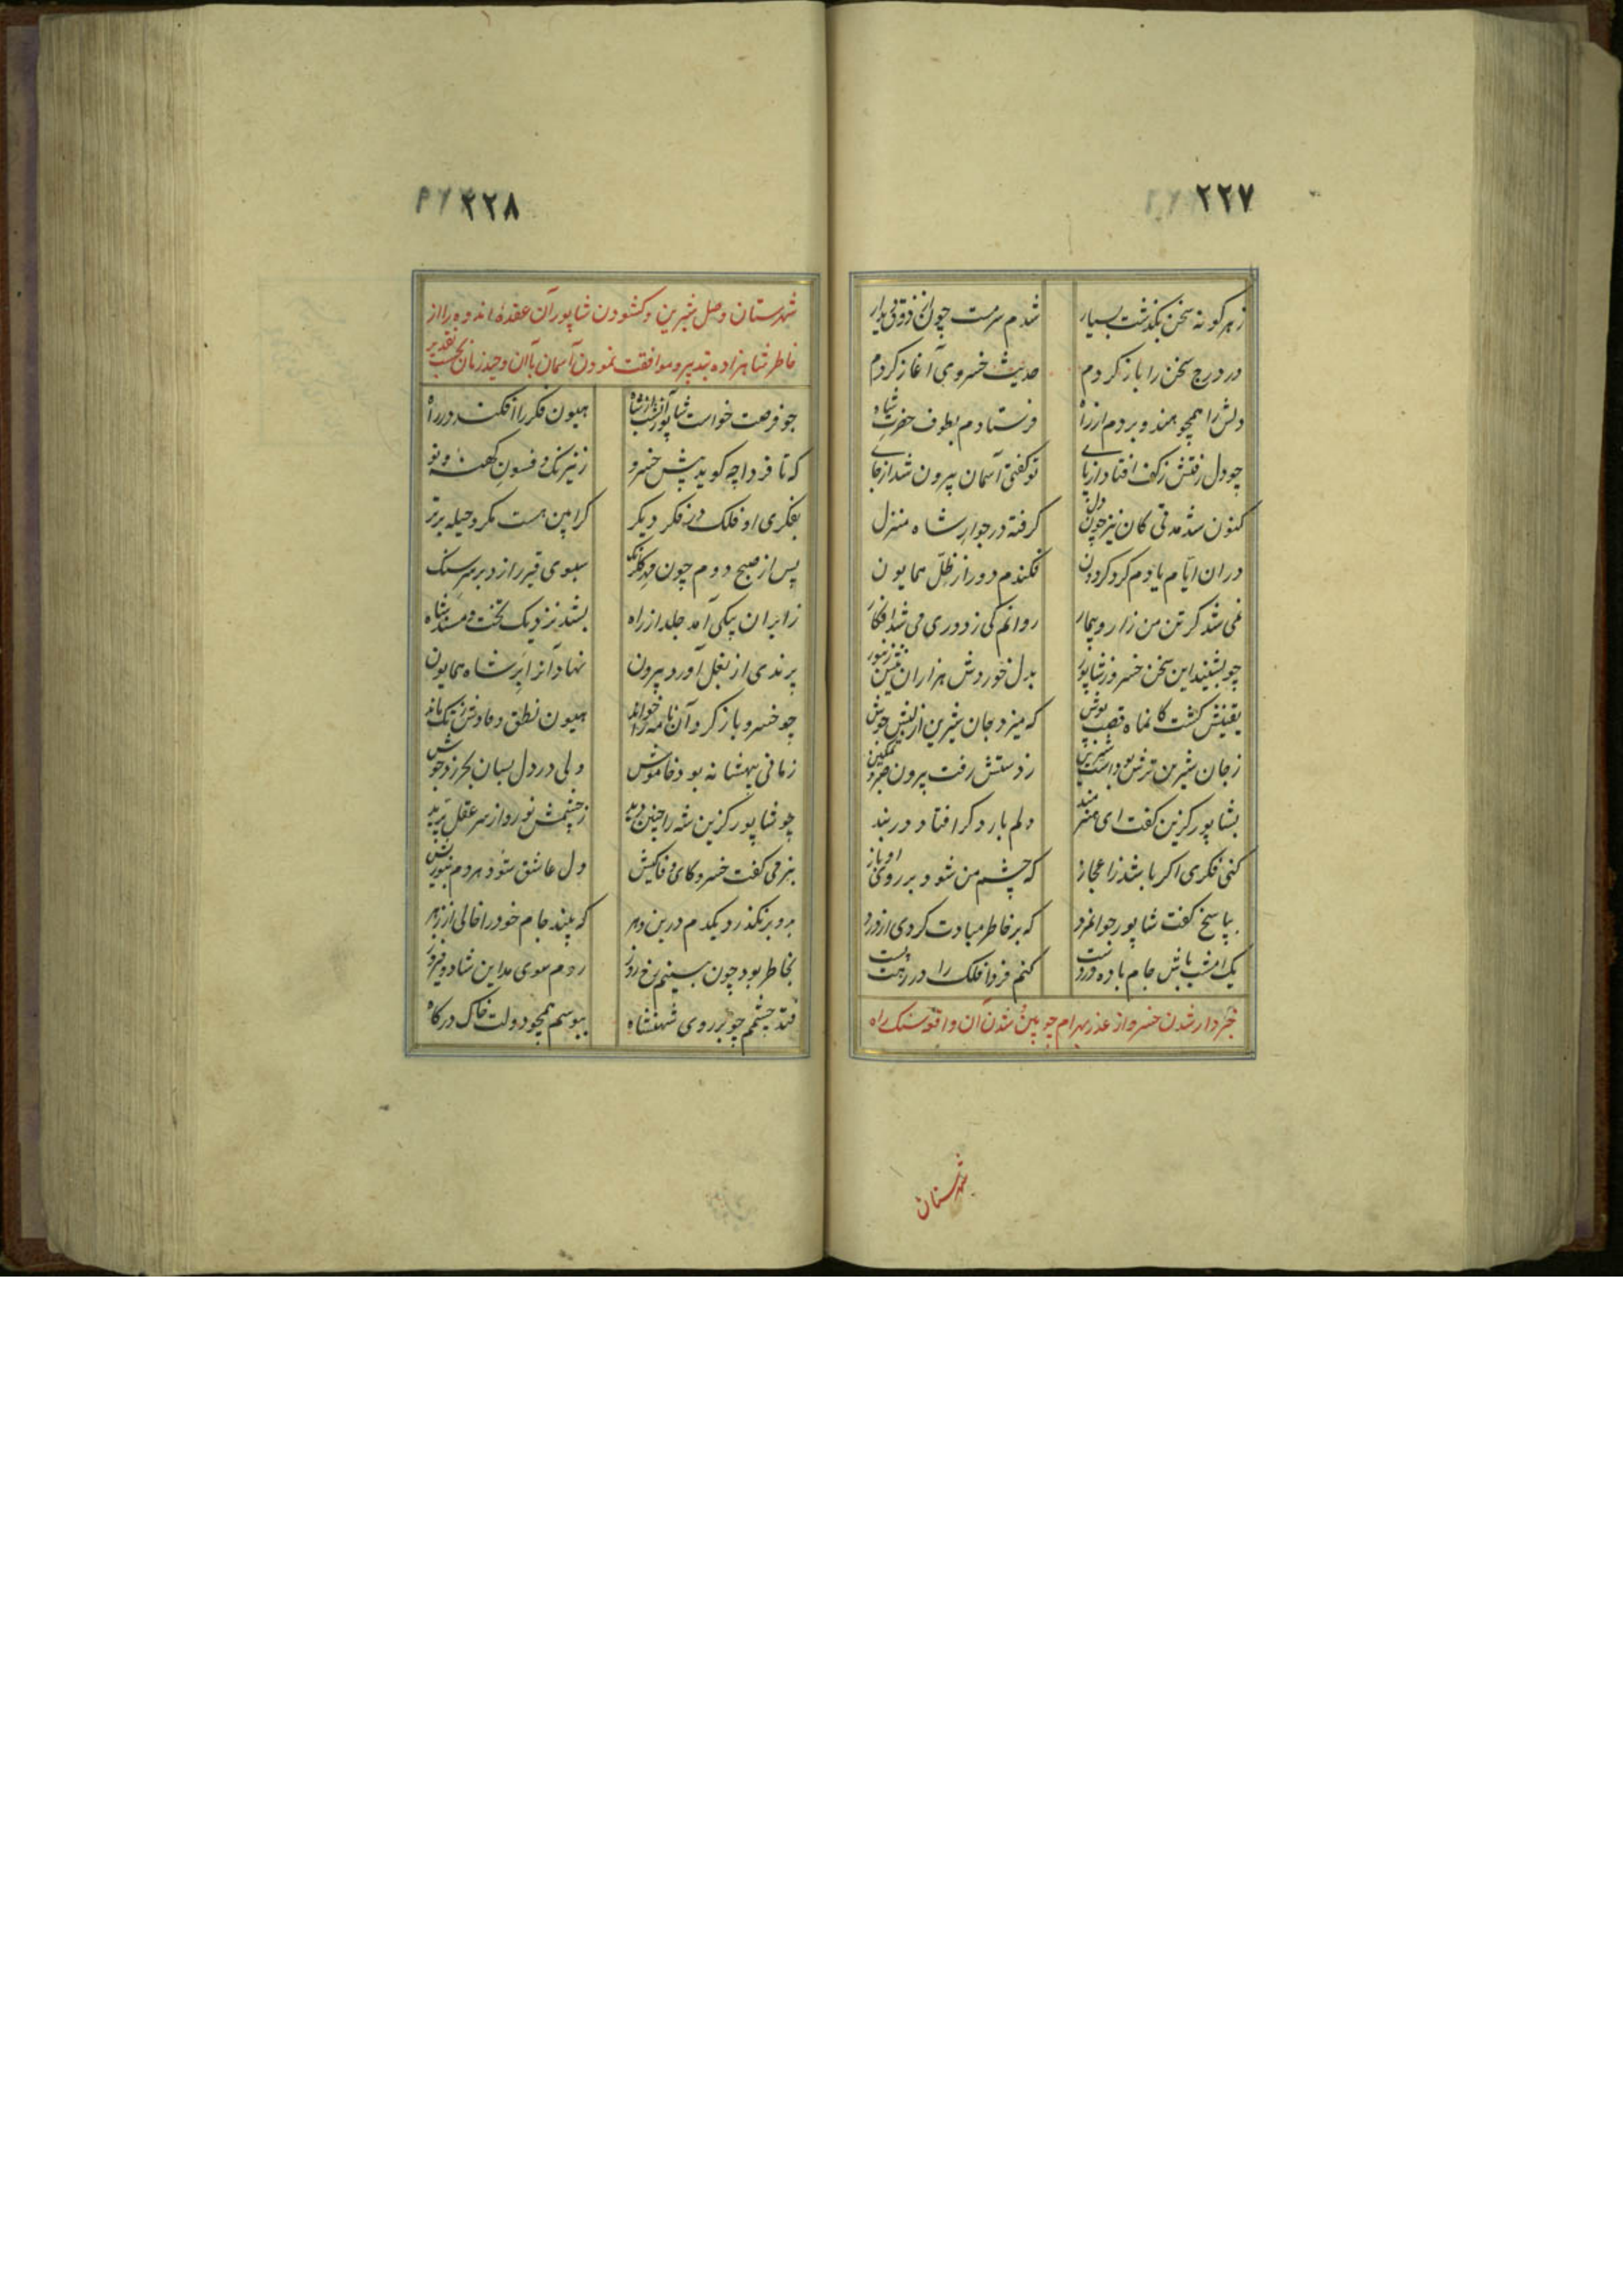 ٢٢٧
ز هر گونه سخن بگذشت بسیار
شدم سرمست چون از ذوق دیدار
در درج سخن را باز کردم
حدیث خسروی آغاز کردم
دلش را همچو هندو بردم از راه
فرستادم بطوف حضرت شاه
چو دل رفتش ز کف افتاد از پای
تو گفتی آسمان بیرون شد از جای
کنون شد مدتی کان نیز چون دل
گرفته در جوار شاه منزل
در ان ایام یادم کرد گردون
فکندم دور از ظل همایون
نمی شد گر تن من زار و بیمار
روانم کی ز دوری می شد افکار
چو بشنید این سخن خسرو ز شاپور
بدل خوردش هزاران نیش زنبور
یقینش گشت کان ماه قصب پوش
که میزد جان شیرین از لبش جوش
ز جان شیرین ترش بود است شیرین
ز دستش رفت بیرون صبر و تمکین
بشاپور گزین گفت ای هنرمند
دلم بار دگر افتاد در بند
کنی فکری اگر باشد ز اعجاز
که چشم من شود بر روی او باز
بپاسخ گفت شاپور جوانمرد
که بر خاطر مبادت گردی از درد
یک امشب باش جام باده در دست
کنم فردا فلک را در رهت پست
خبردار شدن خسرو از غدر بهرام چوبین و شدن آن واقعه سنک راه
شهرستان
٢٢٨
شهرستان وصل شیرین و کشودن شاپور آن عقدهٔ اندوه را از
خاطر شاهزاده بتدبیر و موافقت نمودن آسمان با آن وحید زمان بحسب تقدیر
چو فرصت خواست شاپور آن شب از شاه
هیون فکر را افکند در راه
که تا فردا چه گوید پیش خسرو
ز نیرنک و فسون کهنه و نو
بفکری او فلک در فکر دیگر
کز این هست مکر و حیله برتر
پس از صبح دوم چون
سبوی قیر را زد بر سر سنک
ز ایران پیکی آمد جلد از راه
بشد نزدیک تخت و مسند شاه
پرندی از بغل آورد بیرون
نهاد آنرا بر شاه همایون
چو خسرو باز کرد آن نامه را خواند
هیون نطق و
زمانی بیهشانه بود خاموش
ولی در دل بسان بحر زد جوش
چو شاپور گزین شه را چنین دید
ز چشمش نور و از سر عقل پرید
بنرمی گفت خسرو کای وفاکیش
دل عاشق شود هر دم
برو بر نگذرد یکدم درین دهر
که بیند جام خود را خالی از زهر
بخاطر بود چون بینم رخ روز
روم سوی مداین شاد و فیروز
فتد چشمم چو بر روی شهنشاه
ببوسم همچو دولت خاک درگاه